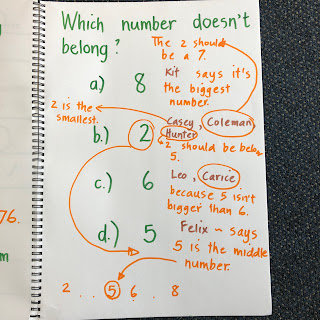 Which number doesn't
belong?
The 2 should
be a 7.
a) 8
Kit says it's
the biggest
number.
2 is the
smallest.
Casey, Coleman
Hunter
b.) 2
2 should be below
5.
c.) 6
Leo, Carice
because 5 isn't
bigger than 6.
d.) 5
Felix ~ says
5 is the middle
number.
2 . . . 5 6 . 8
76.
m